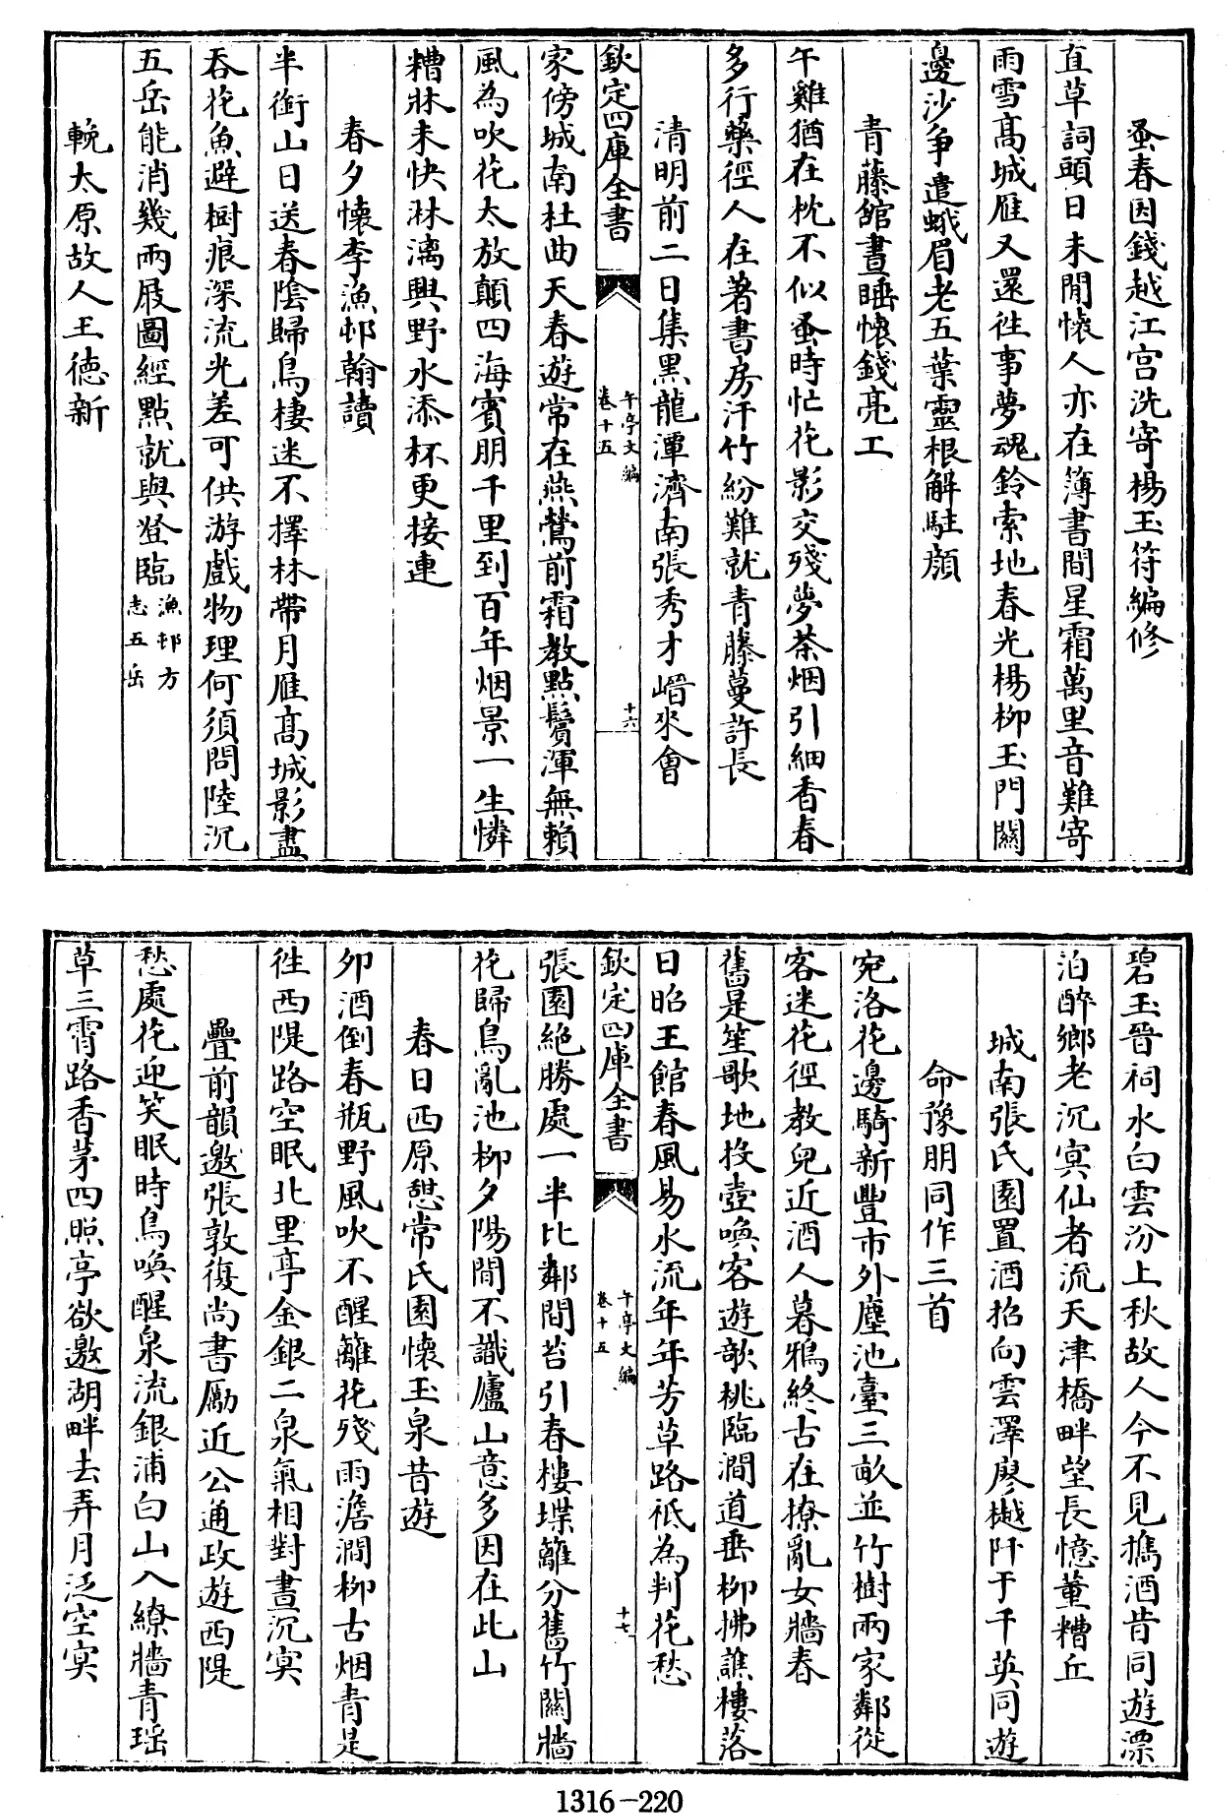 蚤春因錢越江宫洗寄楊玉符編修
直草詞頭日未閒懷人亦在簿書間星霜萬里音難寄
雨雪高城雁又還往事夢魂鈴索地春光楊柳玉門關
邊沙争遣蛾眉老五葉靈根解駐顔
青藤館晝睡懷錢亮工
午雞猶在枕不似蚤時忙花影交殘夢茶烟引細香春
多行藥徑人在著書房汗竹紛難就青藤蔓許長
清明前二日集黑龍潭濟南張秀才㟙來會
欽定四庫全書
午亭文編
卷十五
十六
家傍城南杜曲天春遊常在燕鶯前霜教點鬢渾無賴
風為吹花太放顛四海賓朋千里到百年烟景一生憐
糟牀未快淋漓興野水添杯更接連
春夕懷李漁邨翰讀
半銜山日送春陰歸鳥棲迷不擇林帶月雁高城影盡
吞花魚避樹痕深流光差可供游戲物理何須問陸沉
五岳能消幾兩屐圖經點就與登臨漁邨方志五岳
輓太原故人王德新
碧玉晉祠水白雲汾上秋故人今不見攜酒昔同遊漂
泊醉鄉老沉冥仙者流天津橋畔望長憶董糟丘
城南張氏園置酒招向雲澤廖樾阡于千英同遊
命豫朋同作三首
宛洛花邊騎新豐市外塵池臺三畝並竹樹兩家鄰從
客迷花徑教兒近酒人暮鴉終古在撩亂女牆春
舊是笙歌地投壺喚客遊欹桃臨澗道垂柳拂譙樓落
日昭王館春風易水流年年芳草路祇為判花愁
欽定四庫全書
午亭文編
卷十五
十七
張園絶勝處一半比鄰間苔引春樓堞籬分舊竹關牆
花歸鳥亂池柳夕陽閒不識廬山意多因在此山
春日西原憇常氏園懷玉泉昔遊
夘酒倒春瓶野風吹不醒籬花殘雨澹澗柳古烟青是
往西隄路空眠北里亭金銀二泉氣相對晝沉冥
疊前韻邀張敦復尚書勵近公通政遊西隄
愁處花迎笑眠時鳥喚醒泉流銀浦白山入繚牆青瑶
草三霄路香茅四照亭欲邀湖畔去弄月泛空冥
1316—220